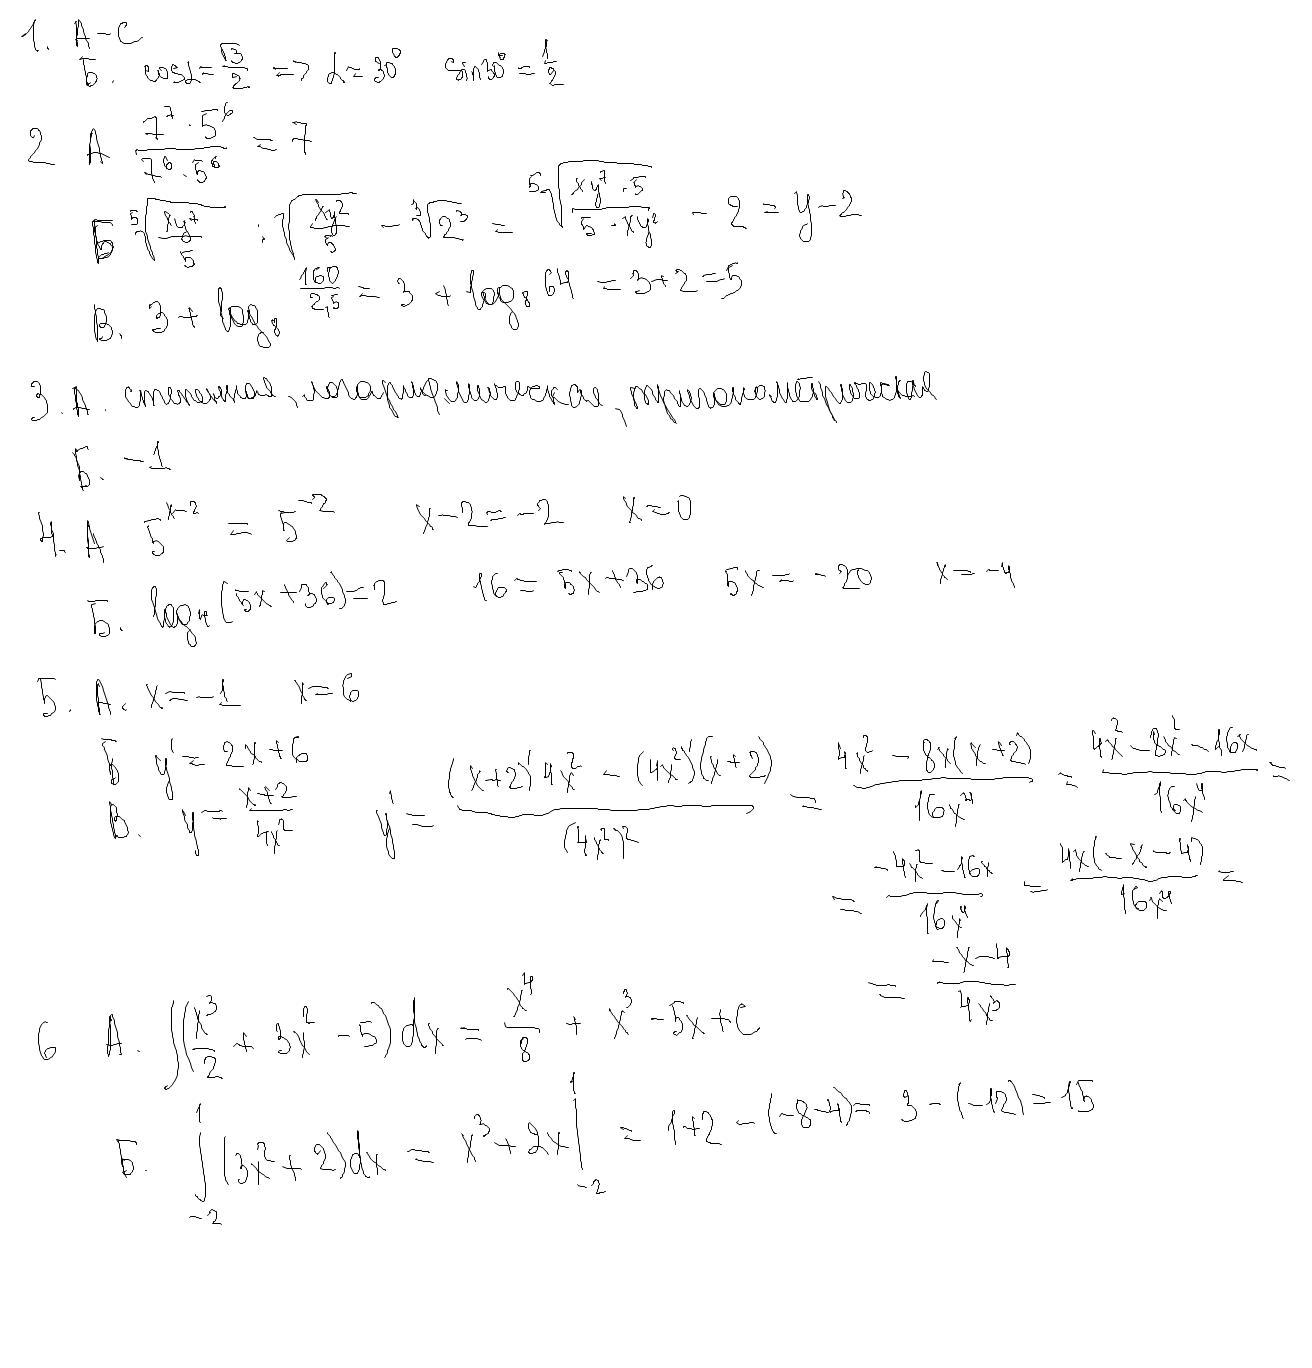 1. А – С
Б. cosα = √3/2 => α = 30° sin30° = 1/2
2 А (7⁷ · 5⁶)/(7⁶ · 5⁶) = 7
Б ⁵√(xy⁷/5) : √(xy²/5) – ³√2³ = ⁵√((xy⁷ · 5)/(5 · xy²)) – 2 = y – 2
В. 3 + log₈ 160/2,5 = 3 + log₈ 64 = 3 + 2 = 5
3. А. степенная, логарифмическая, тригонометрическая
Б. –1
4. А 5ˣ⁻² = 5⁻² x – 2 = –2 x = 0
Б. log₄(5x + 36) = 2 16 = 5x + 36 5x = –20 x = –4
5. А. x = –1 x = 6
Б y' = 2x + 6
В. y = (x+2)/4x² y' = ((x+2)' 4x² – (4x²)'(x+2))/(4x²)² = (4x² – 8x(x+2))/16x⁴ = (4x² – 8x² – 16x)/16x⁴ =
= (–4x² – 16x)/16x⁴ = 4x(–x – 4)/16x⁴ =
= (–x – 4)/4x³
6 А. ∫(x³/2 + 3x² – 5)dx = x⁴/8 + x³ – 5x + C
Б. ∫₋₂¹(3x² + 2)dx = x³ + 2x|₋₂¹ = 1 + 2 – (–8 – 4) = 3 – (–12) = 15